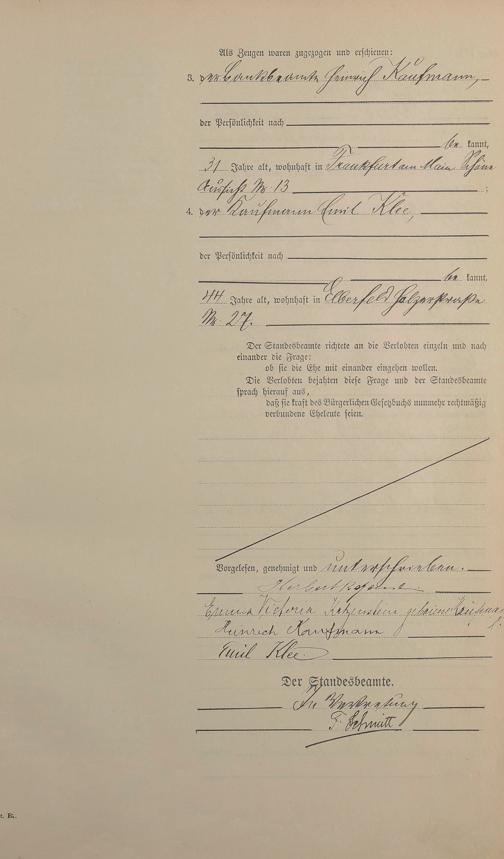 Als Zeugen waren zugezogen und erschienen:
3. der Bankbeamte Heinrich Kaufmann,
der Persönlichkeit nach
be kannt,
31 Jahre alt, wohnhaft in Frankfurt am Main Schöne
Aussicht № 13 ;
4. der Kaufmann Emil Klee,
der Persönlichkeit nach
be kannt,
44 Jahre alt, wohnhaft in Elberfeld
№ 27.
Der Standesbeamte richtete an die Verlobten einzeln und nach
einander die Frage:
ob sie die Ehe mit einander eingehen wollen.
Die Verlobten bejahten diese Frage und der Standesbeamte
sprach hierauf aus,
daß sie kraft des Bürgerlichen Gesetzbuchs nunmehr rechtmäßig
verbundene Eheleute seien.
Vorgelesen, genehmigt und unterschrieben.
Herbert
Emma Victoria Katzenstein geborene
Heinrich Kaufmann
Emil Klee
Der Standesbeamte.
In Vertretung
F. Schmitt